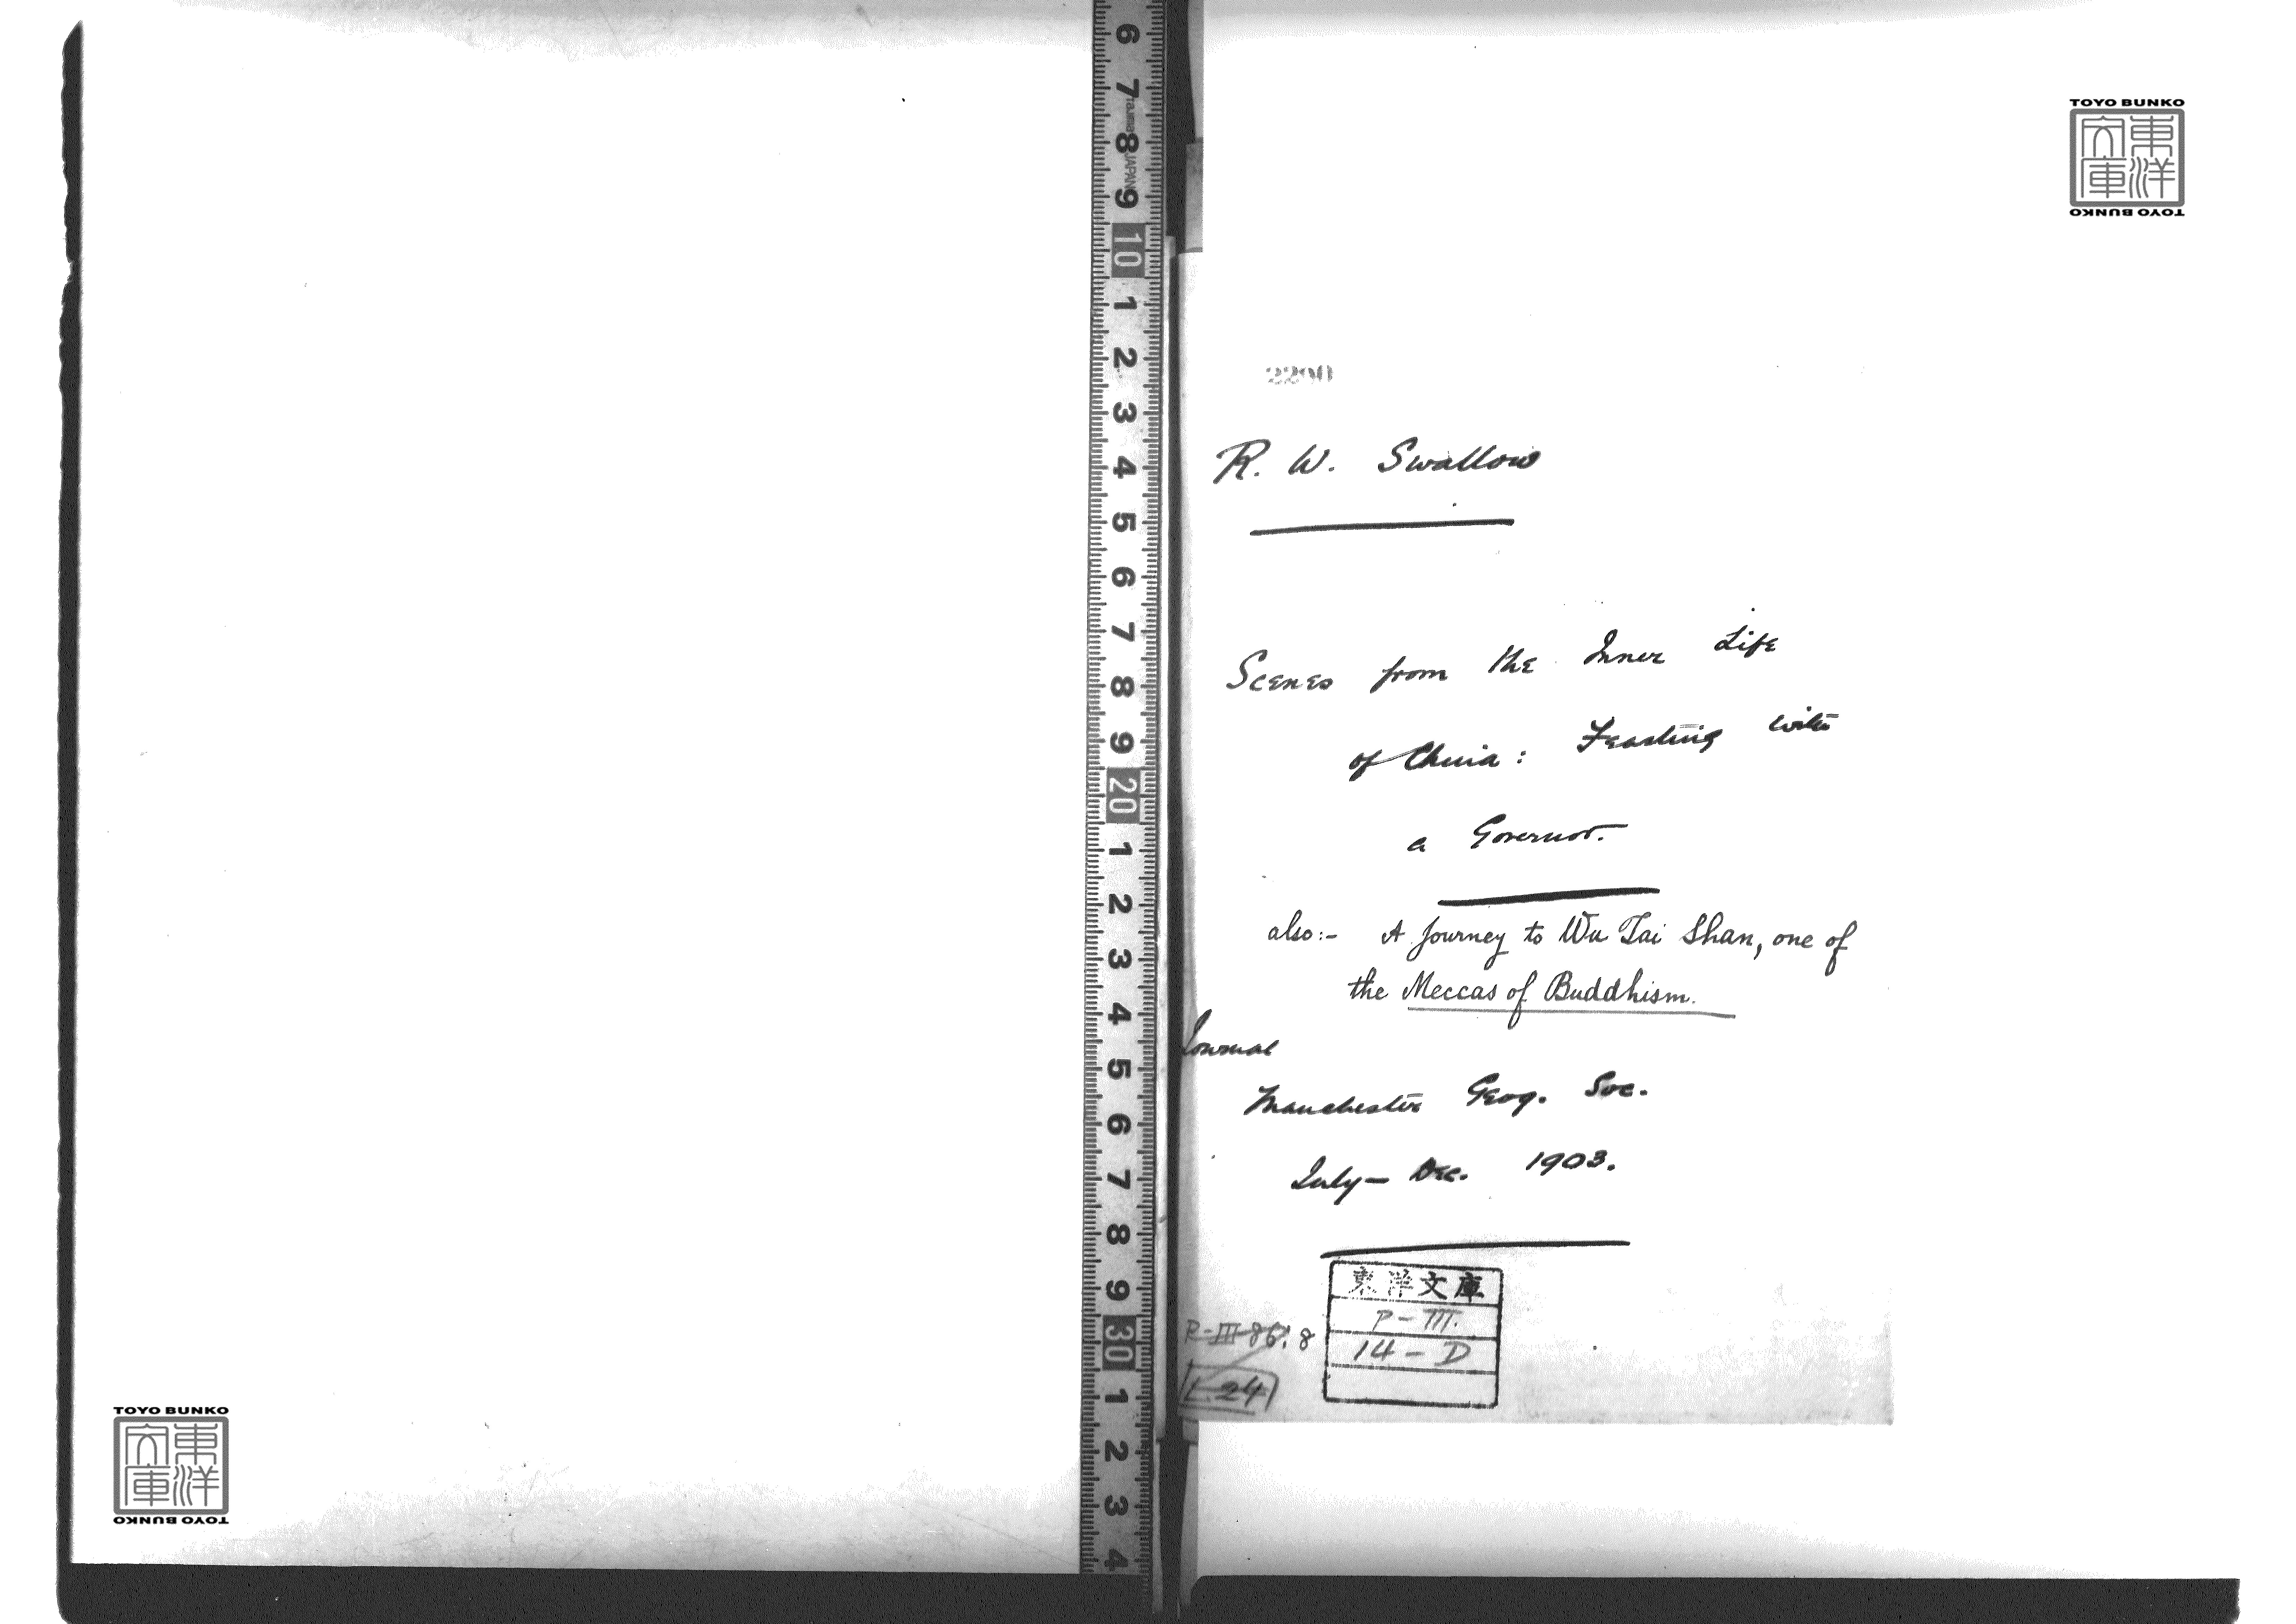 TOYO BUNKO
東洋文庫
TOYO BUNKO
6
7
8
9
10
1
2
3
4
5
6
7
8
9
20
1
2
3
4
5
6
7
8
9
30
1
2
3
4
JAPAN
2290
R. W. Swallow
Scenes from the Inner Life
of China: Feasting with
a Governor.
also:- A Journey to Wu Tai Shan, one of
the Meccas of Buddhism.
Journal
Manchester Geog. Soc.
July - Dec. 1903.
東洋文庫
P-III.
14-D
P-III-86. 8
24
TOYO BUNKO
東洋文庫
TOYO BUNKO